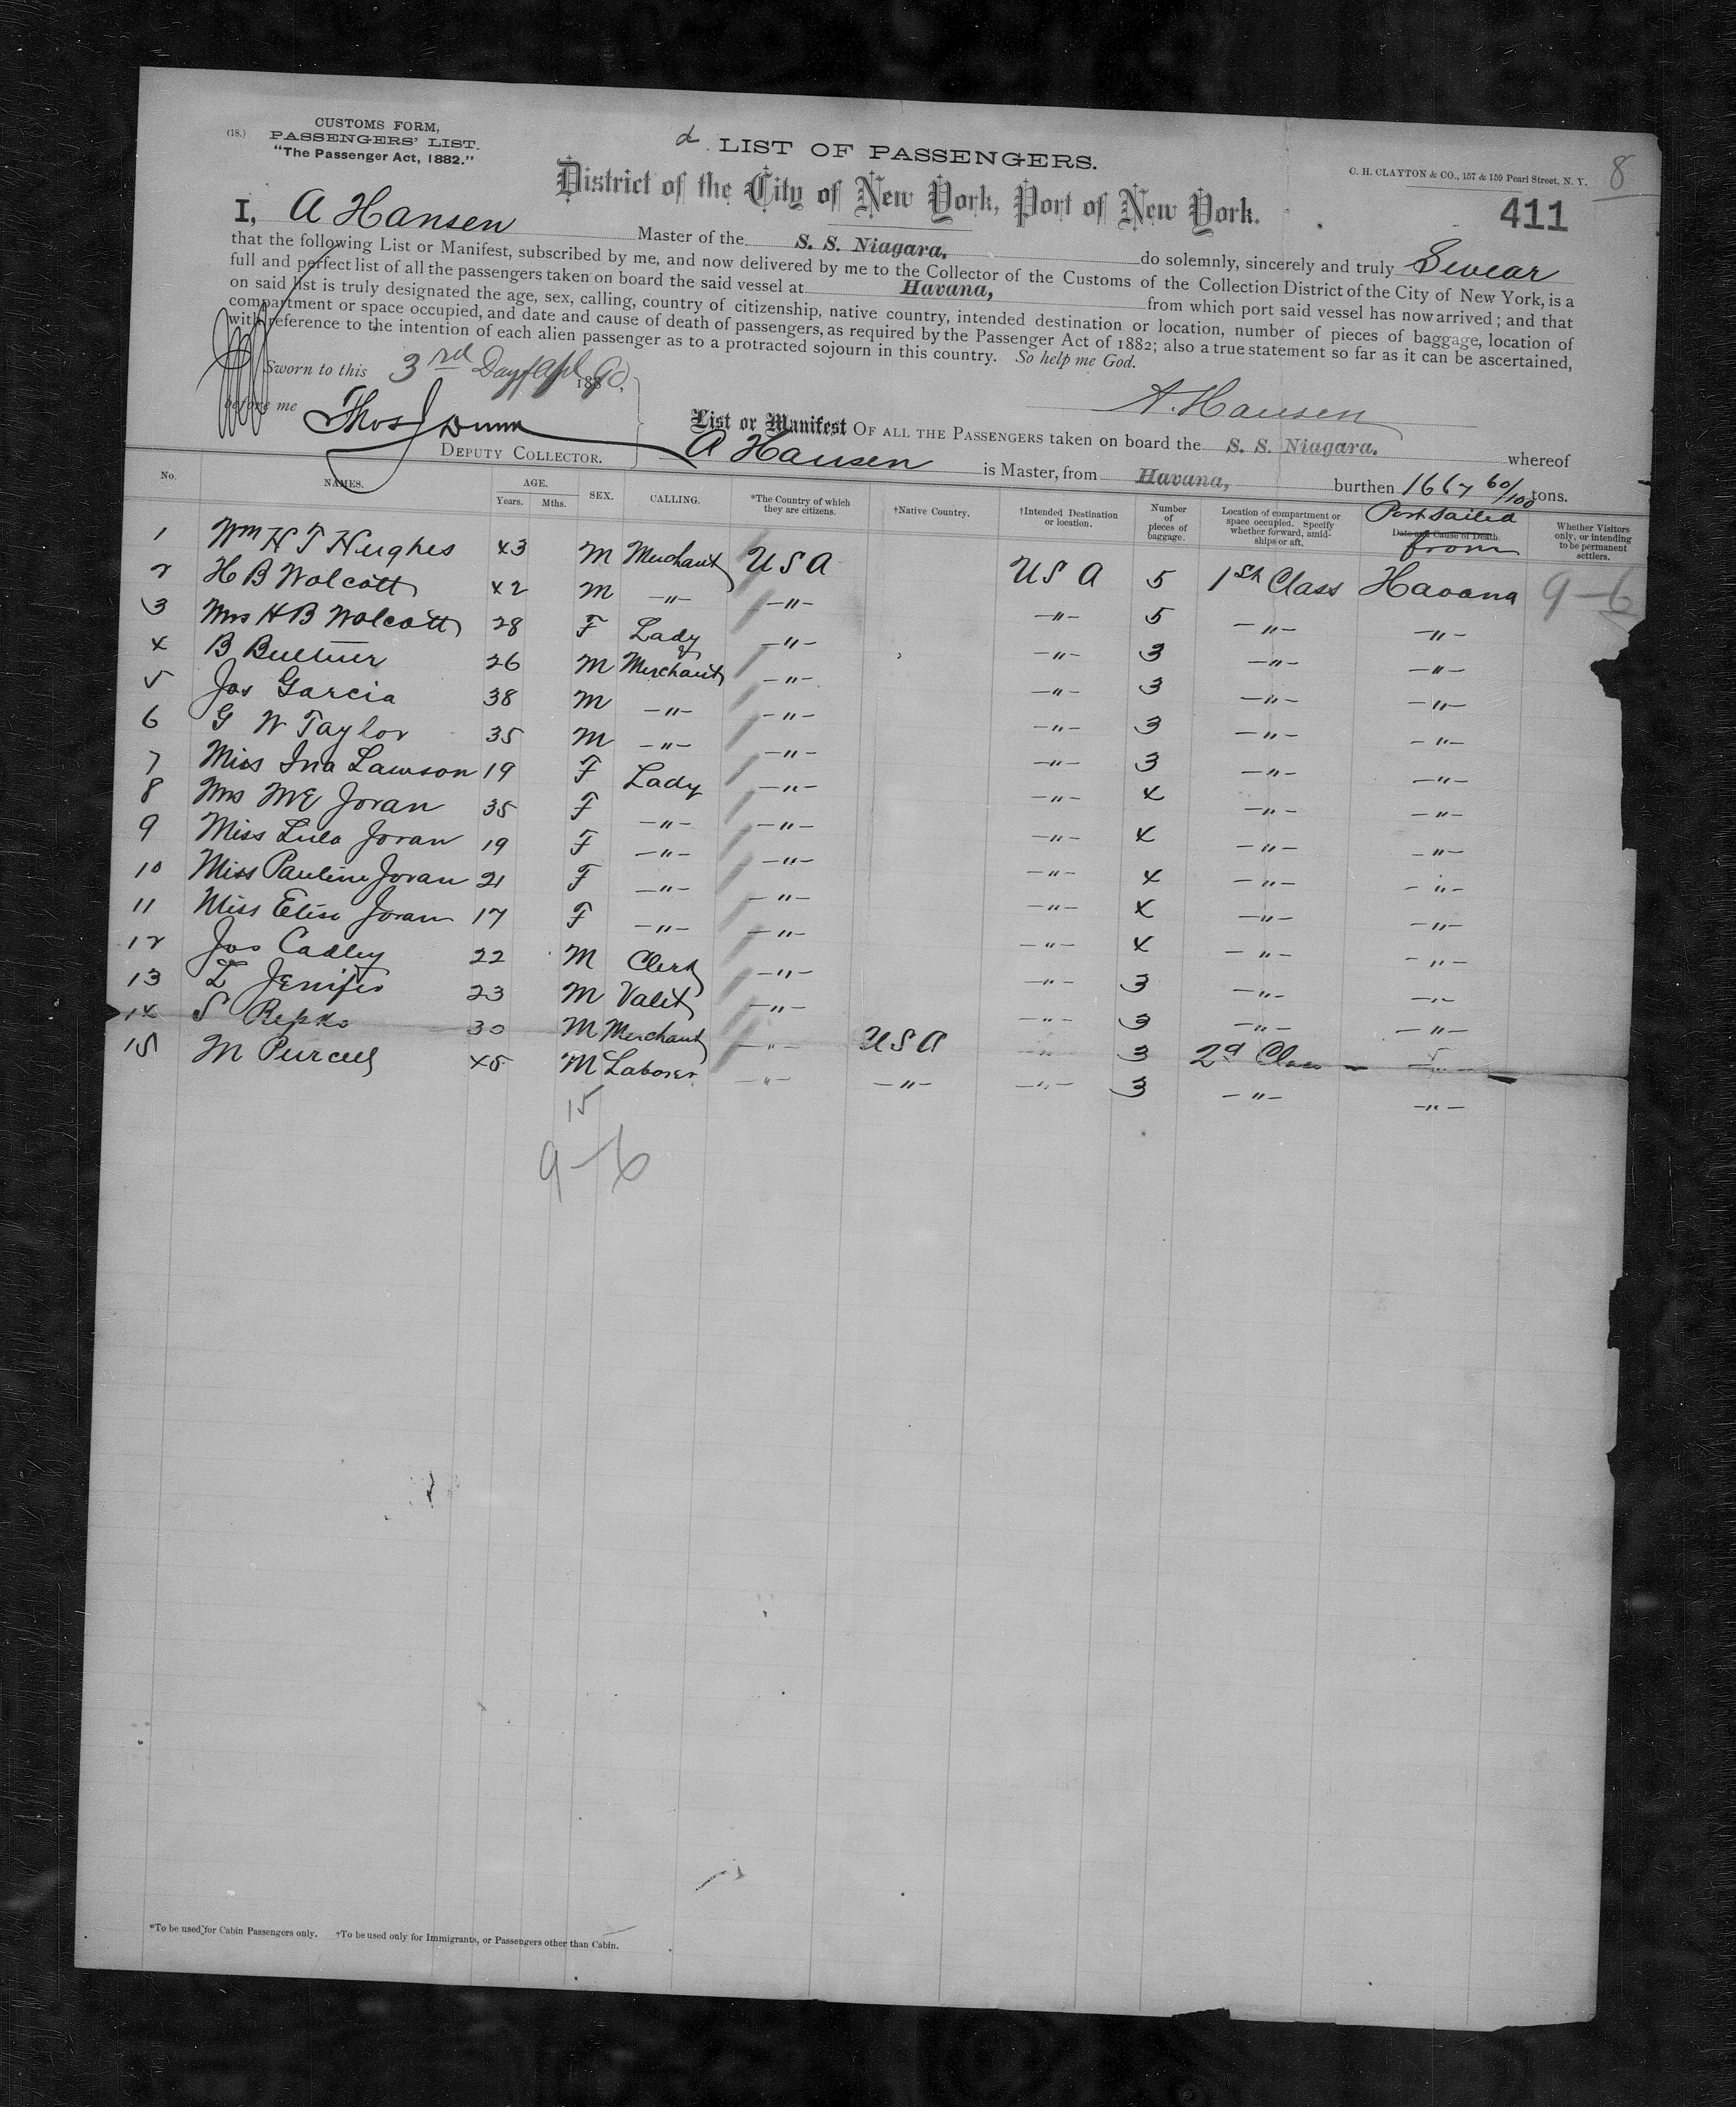 (18.)
CUSTOMS FORM,
PASSENGERS' LIST.
"The Passenger Act, 1882."
LIST OF PASSENGERS.
District of the City of New York, Port of New York.
C. H. CLAYTON & CO., 157 & 159 Pearl Street, N. Y.
8
411
I, A Hansen Master of the S. S. Niagara. do solemnly, sincerely and truly Swear
that the following List or Manifest, subscribed by me, and now delivered by me to the Collector of the Customs of the Collection District of the City of New York, is a
full and perfect list of all the passengers taken on board the said vessel at Havana, from which port said vessel has now arrived; and that
on said list is truly designated the age, sex, calling, country of citizenship, native country, intended destination or location, number of pieces of baggage, location of
compartment or space occupied, and date and cause of death of passengers, as required by the Passenger Act of 1882; also a true statement so far as it can be ascertained,
with reference to the intention of each alien passenger as to a protracted sojourn in this country. So help me God.
Sworn to this 3rd Day of Apl 1890,
A. Hansen
before me Thos J Dunn
DEPUTY COLLECTOR.
List or Manifest OF ALL THE PASSENGERS taken on board the S. S. Niagara. whereof
A Hansen is Master, from Havana, burthen 1667 60/100 tons.
No. NAMES. AGE. Years. Mths. SEX. CALLING. *The Country of which they are citizens. †Native Country. †Intended Destination or location. Number of pieces of baggage. Location of compartment or space occupied. Specify whether forward, amidships or aft. Date and Cause of Death. Port Sailed from Whether Visitors only, or intending to be permanent settlers.
1 Wm H T Hughes 43 M Merchant USA USA 5 1st Class Havana 9-6
2 H B Wolcott 42 M -"- -"- -"- 5 -"- -"-
3 Mrs H B Wolcott 28 F Lady -"- -"- 3 -"- -"-
4 B 26 M Merchant -"- -"- 3 -"- -"-
5 Jos Garcia 38 M -"- -"- -"- 3 -"- -"-
6 G W Taylor 35 M -"- -"- -"- 3 -"- -"-
7 Miss Ina Lawson 19 F Lady -"- -"- 4 -"- -"-
8 Mrs M E Joran 35 F -"- -"- -"- 4 -"- -"-
9 Miss Lula Joran 19 F -"- -"- -"- 4 -"- -"-
10 Miss Pauline Joran 21 F -"- -"- -"- 4 -"- -"-
11 Miss Elise Joran 17 F -"- -"- -"- 4 -"- -"-
12 Jos Cadley 22 M Clerk -"- -"- 3 -"- -"-
13 23 M Valet -"- -"- 3 -"- -"-
14 S Repko 30 M Merchant -"- USA -"- 3 2d Class -"-
15 M Purcell 45 M Laborer -"- -"- -"- 3 -"- -"-
15
9-6
*To be used for Cabin Passengers only. †To be used only for Immigrants, or Passengers other than Cabin.